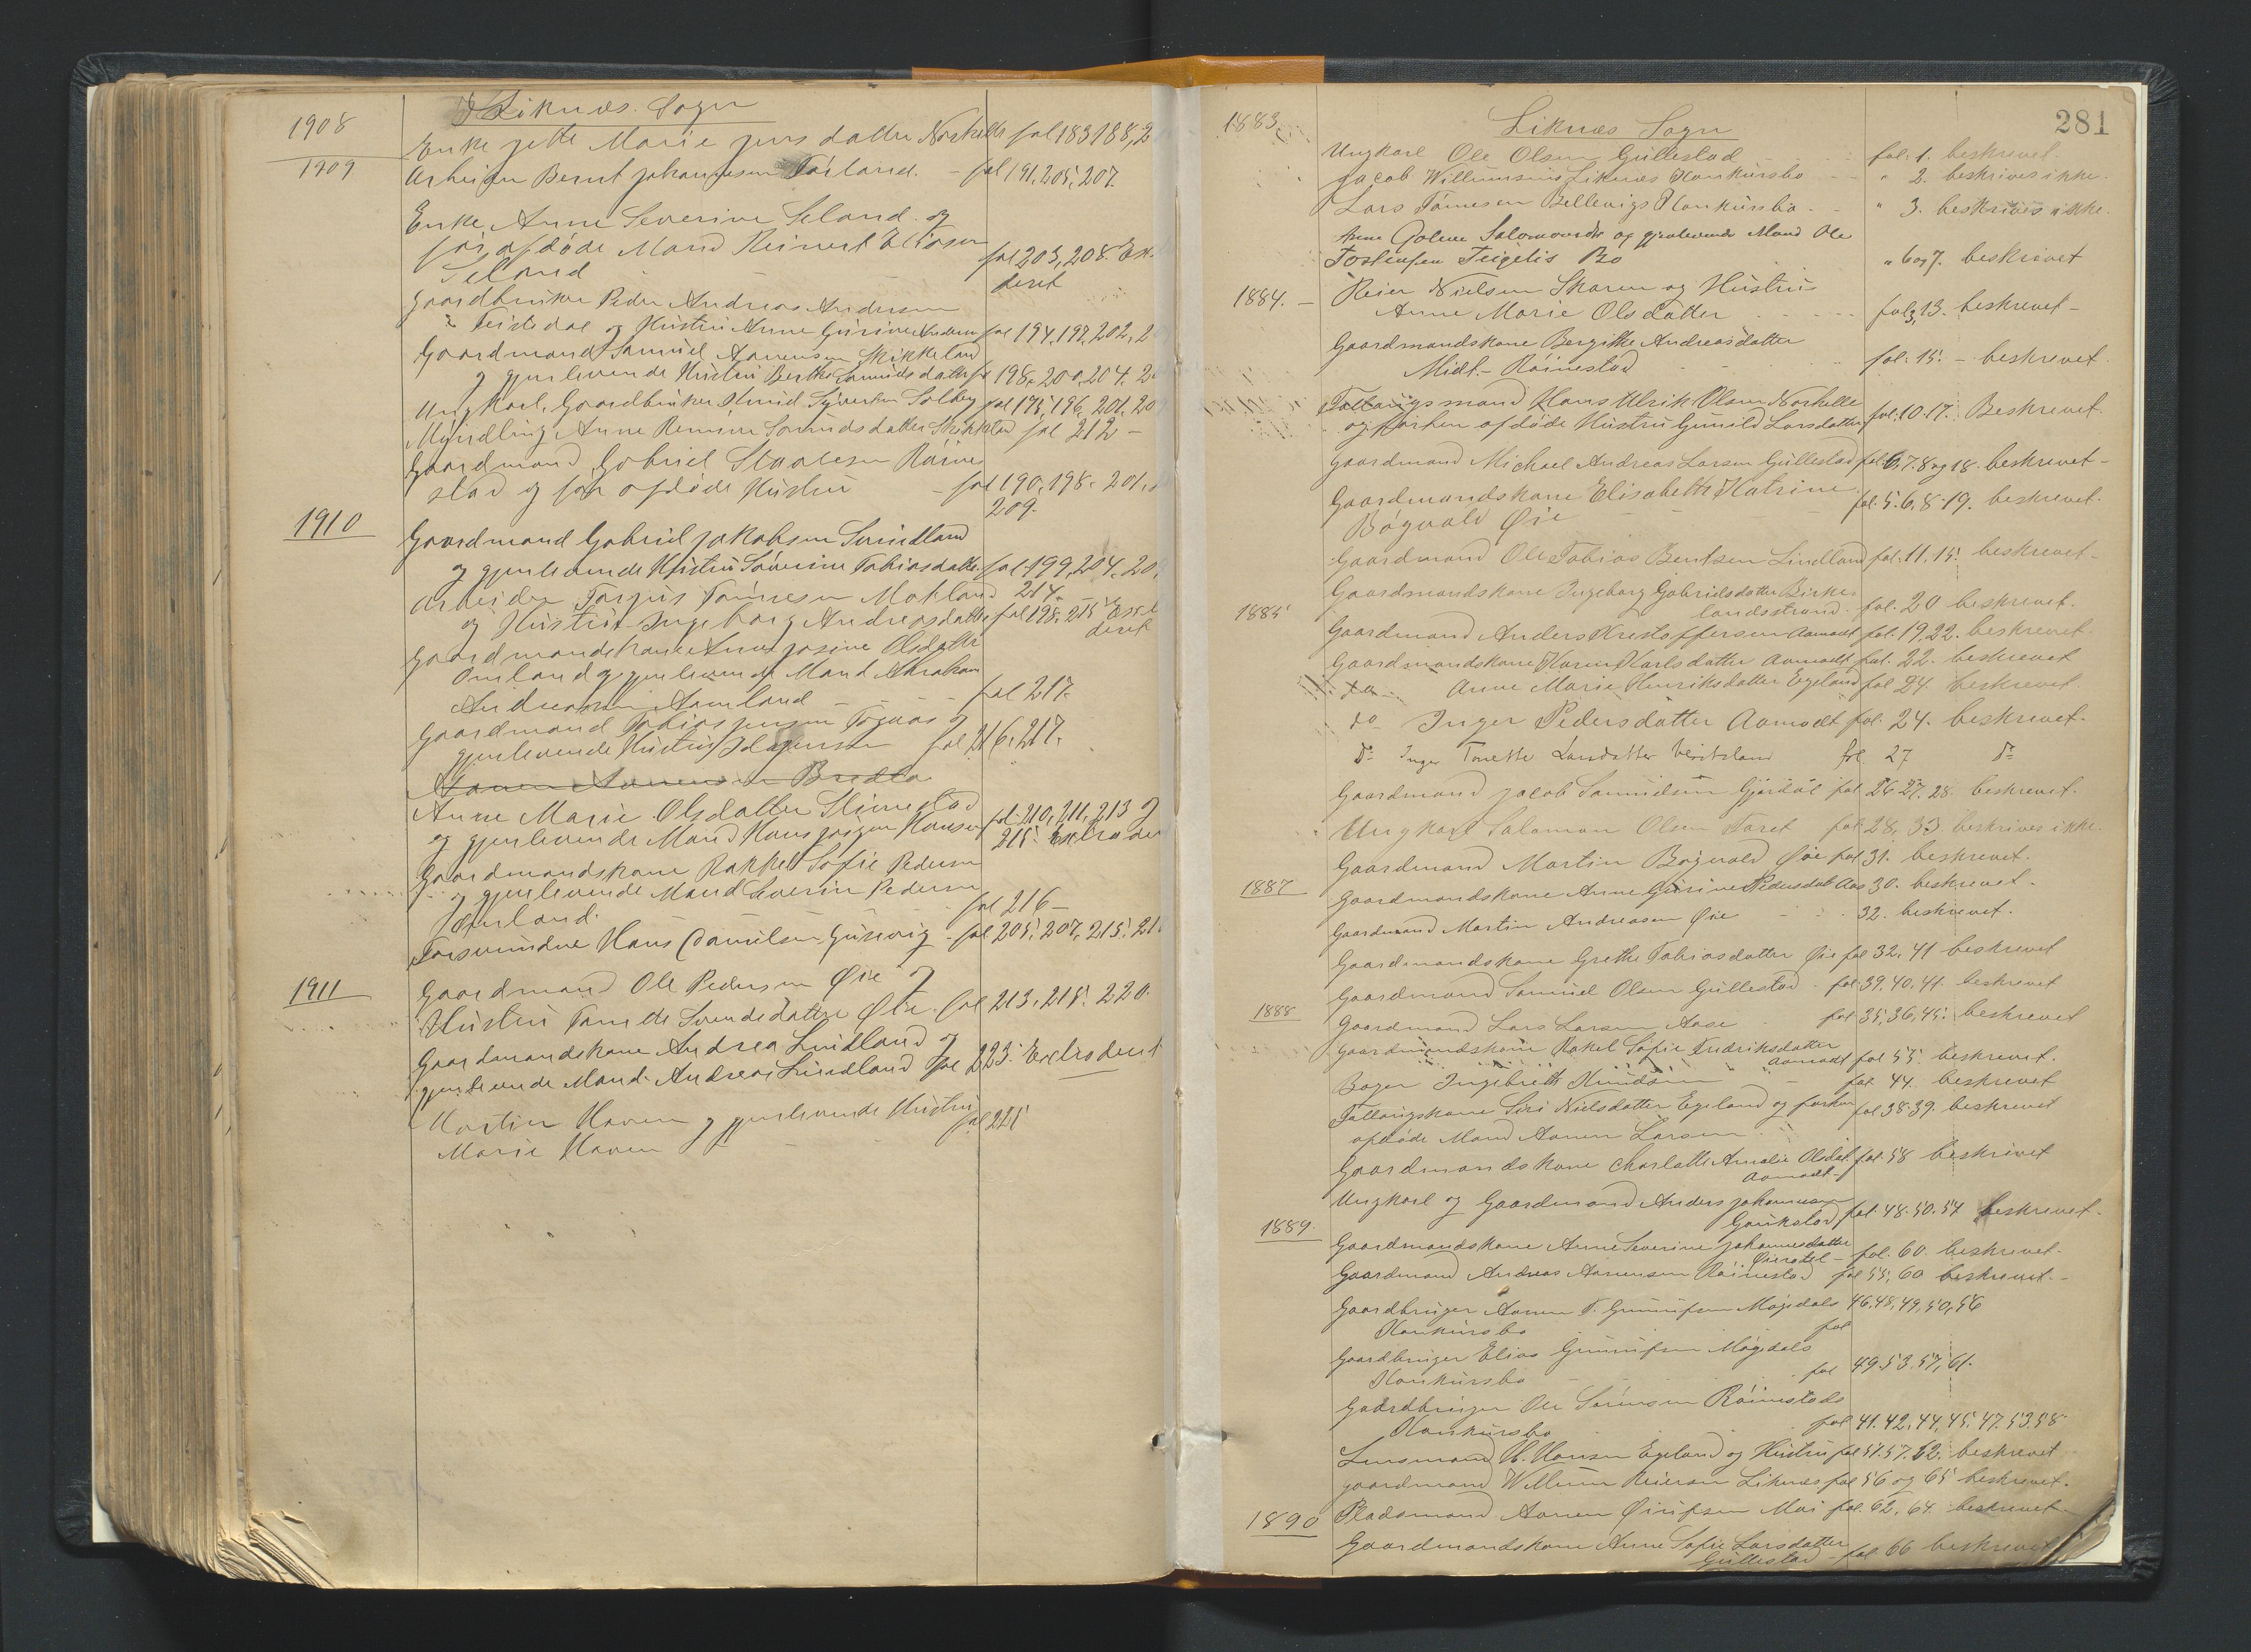 Liknæs Sogn
1908
Enke Jette Marie Jens datter fol 183 188, 2
1909
Arbeider Bernt Johannesen - fol 191, 205, 207.
Enke Anne Severine Seland og
før afdøde Mand Reinert Eliasen
Seland fol 203, 208. Ex.
deret
Gaardbruker Peder Andreas Andersen
Feistedal og Hustru Anne Gurine Andersen fol 194, 197, 202, 2
Gaardmand Samuel Aanensen Skikkeland
og gjenlevende Hustru Berthe Samuelsdatter fol 198, 200, 204, 2
Ungkarl, Gaardbruker Sivertsen Solberg fol 195, 196, 201, 20
Myndling Anne Samuelsdatter fol 212 -
Gaardmand Gabriel Staalesen Røine
stad og før afdøde Hustru - fol 190, 198, 201,
209.
1910
Gaardmand Gabriel Jakobsen Svindland
og gjenlevende Hustru Søverine Tobiasdatter fol 199, 204, 20
214.
Arbeider Tørresen
og Hustru Ingeborg Andreasdatter fol 198, 215
deret
Gaardmandskone Anne Josine Olsdatter
Omland og gjenlevende Mand Abraham
Andreassen fol 217.
Gaardmand Tobias Jensen og
gjenlevende Hustru fol 216, 217.
Aanen Aanensen
Anne Marie Olsdatter
og gjenlevende Mand Hans Jørgen Hansen fol 210, 211, 213 og
215. Extrader
Gaardmandskone Rakkel Sofie Pedersen
og gjenlevende Mand Severin Pedersen
fol 216 -
Forsvundne Hans Danielsen - fol 205, 207, 215, 21
1911
Gaardmand Ole Pedersen Øie og
Hustru Tonette Svendsdatter Øie. fol 213, 218, 220.
Gaardmandskone Andrea Lindland og
gjenlevende Mand Andreas Lindland fol 223. Extradert
Martin Haven og gjenlevende Hustru
Marie Haven - fol 225
281
Liknæs Sogn
1883.
Ungkarl Ole Olsen Gullestad fol. 1. beskrevet.
Jacob Willumsens Liknæs Konkursbo " 2. beskrives ikke.
Lars Tønnesen Bellevigs Konkursbo " 3. beskrives ikke.
Anne Golene Salomonsdr og gjenlevende Mand Ole
Bo " 6 og 7. beskrivet
1884. -
Reier Nielsen Skaren og Hustru
Anne Marie Olsdatter fol 3, 13. beskrevet -
Gaardmandskone Bergitte Andreasdatter
Midt-Røinestad fol. 15. - beskrevet
Hans Ulrik Olsen
og forhen afdøde Hustru Gunild Larsdatter fol. 10. 17. Beskrevet.
Gaardmand Michael Andreas Larsen Gullestad fol 6, 7. 8 og 18. beskrevet -
Gaardmandskone Elisabeth Katrine
Bøgvald Øie fol. 5. 6, 8. 19. beskrevet.
Gaardmand Ole Tobias Bentsen Lindland fol. 11. 15. beskrevet -
Gaardmandskone Ingeborg Gabrielsdatter Birke
landsstrand fol. 20 beskrevet.
1885
Gaardmand Anders Kristoffersen Aamodt fol. 19, 22. beskrevet.
Gaardmandskone Karen Karlsdatter Aamodt fol. 22. beskrevet
do Anne Marie Henriksdatter Egeland fol 24. beskrevet
do Inger Pedersdatter Aamodt fol. 24. beskrevet.
do Inger Tonette Larsdatter fol. 27 do
Gaardmand Jacob Samuelsen fol 26 27. 28 beskrevet.
Ungkarl Salamon Olsen fol 28, 33 beskrives ikke.
Gaardmand Martin Bøgvald Øie fol 31. beskrevet.
1887
Gaardmandskone Anne Gurine Pedersdat Aas 30. beskrevet.
Gaardmand Martin Andreasen Øie 32. beskrevet.
Gaardmandskone Grethe Tobiasdatter Øie fol 32, 41 beskrevet
Gaardmand Samuel Olsen Gullestad fol 39, 40, 41. beskrevet
1888
Gaardmand Lars Larsen Aase fol 35, 36, 45. beskrevet
Gaardmandskone Rakel Sofie Fredriksdatter
Aamodt fol 55. beskrevet.
Bager Ingebreth Knudsen - fol 44. beskrevet
Siri Nielsdatter Egeland og forhen
afdøde Mand Aanen Larsen fol 38. 39. beskrevet
Gaardmandskone Charlotte Amalie Olsdat.
Aamodt - fol. 58 beskrivet
Ungkarl og Gaardmand Anders Johannesen
Gaukstad fol. 48. 50. 54 beskrevet.
1889.
Gaardmandskone Anne Severine Johannesdatter
fol. 60. beskrevet.
Gaardmand Andreas Aanensen Røinestad fol 55, 60 beskrevet. -
Gaardbruger Aanen T. Gunnufsen Møgedals
Konkursbo fol 46, 48, 49, 50, 56
Gaardbruger Elias Gunnufsen Møgedals
Konkursbo fol 49. 53. 57, 61.
Gaardbruger Ole Sørensen Røinestads
Konkursbo fol 41. 42, 44, 45. 47. 53. 58
Lensmand H. Hansen Egeland og Hustru fol 51. 57. 62. beskrevet
Gaardmand Willum Reiersen Liknæs fol 56 og 65 beskrevet.
1890
Pladsmand Aanen Moi fol. 62. 64. beskrevet
Gaardmandskone Anne Sofie Larsdatter
Gullestad - fol. 66 beskrevet